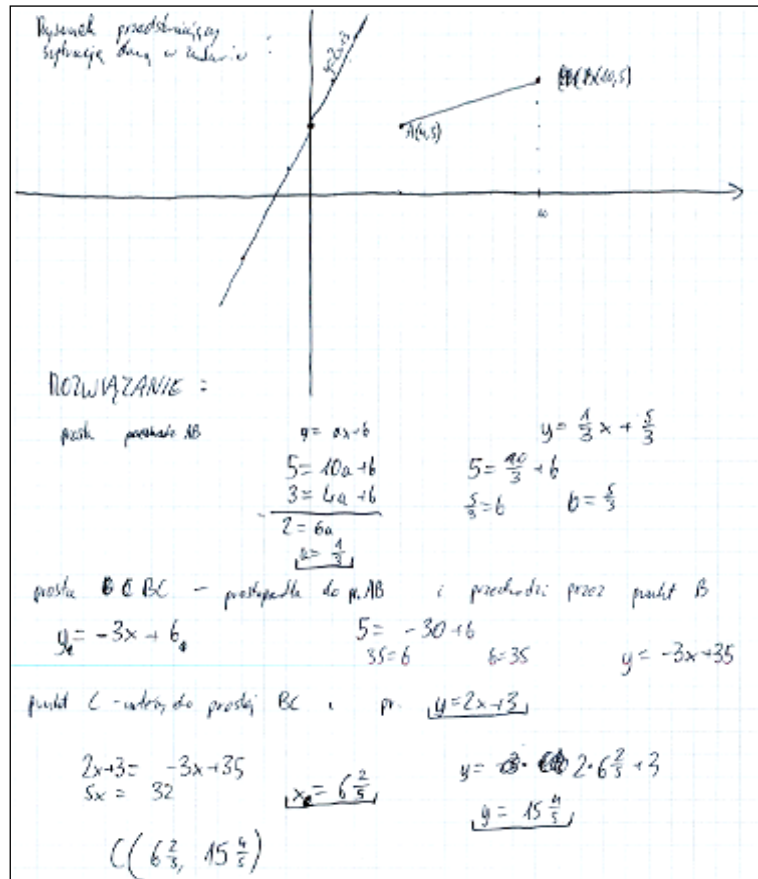 Rysunek przedstawiający
sytuację daną w zadaniu :
y=2x+3
A(4,3)
B(10,5)
10
ROZWIĄZANIE :
prosta AB
y = ax+b
y = 1/3 x + 5/3
5 = 10a+b
5 = 10/3 + b
3 = 4a+b
5/3 = b
b = 5/3
2 = 6a
a = 1/3
prosta BC – prostopadła do p. AB i przechodzi przez punkt B
y = -3x + b
5 = -30+b
35 = b
b = 35
y = -3x+35
punkt C - należy do prostej BC i pr. y=2x+3
2x+3 = -3x+35
y = 2·6 2/5 +3
5x = 32
x = 6 2/5
y = 15 4/5
C(6 2/5, 15 4/5)